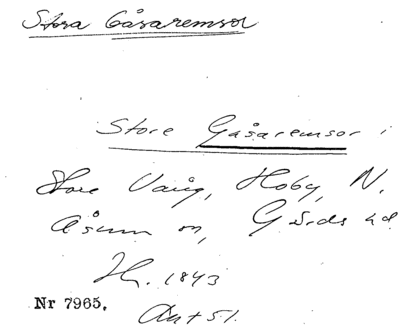 Stora Gåsaremsor
Store Gåsaremsor i
Store Vång, Hoby, N.
Åsum sn, Gärds hd.
1843
Nr 7965.